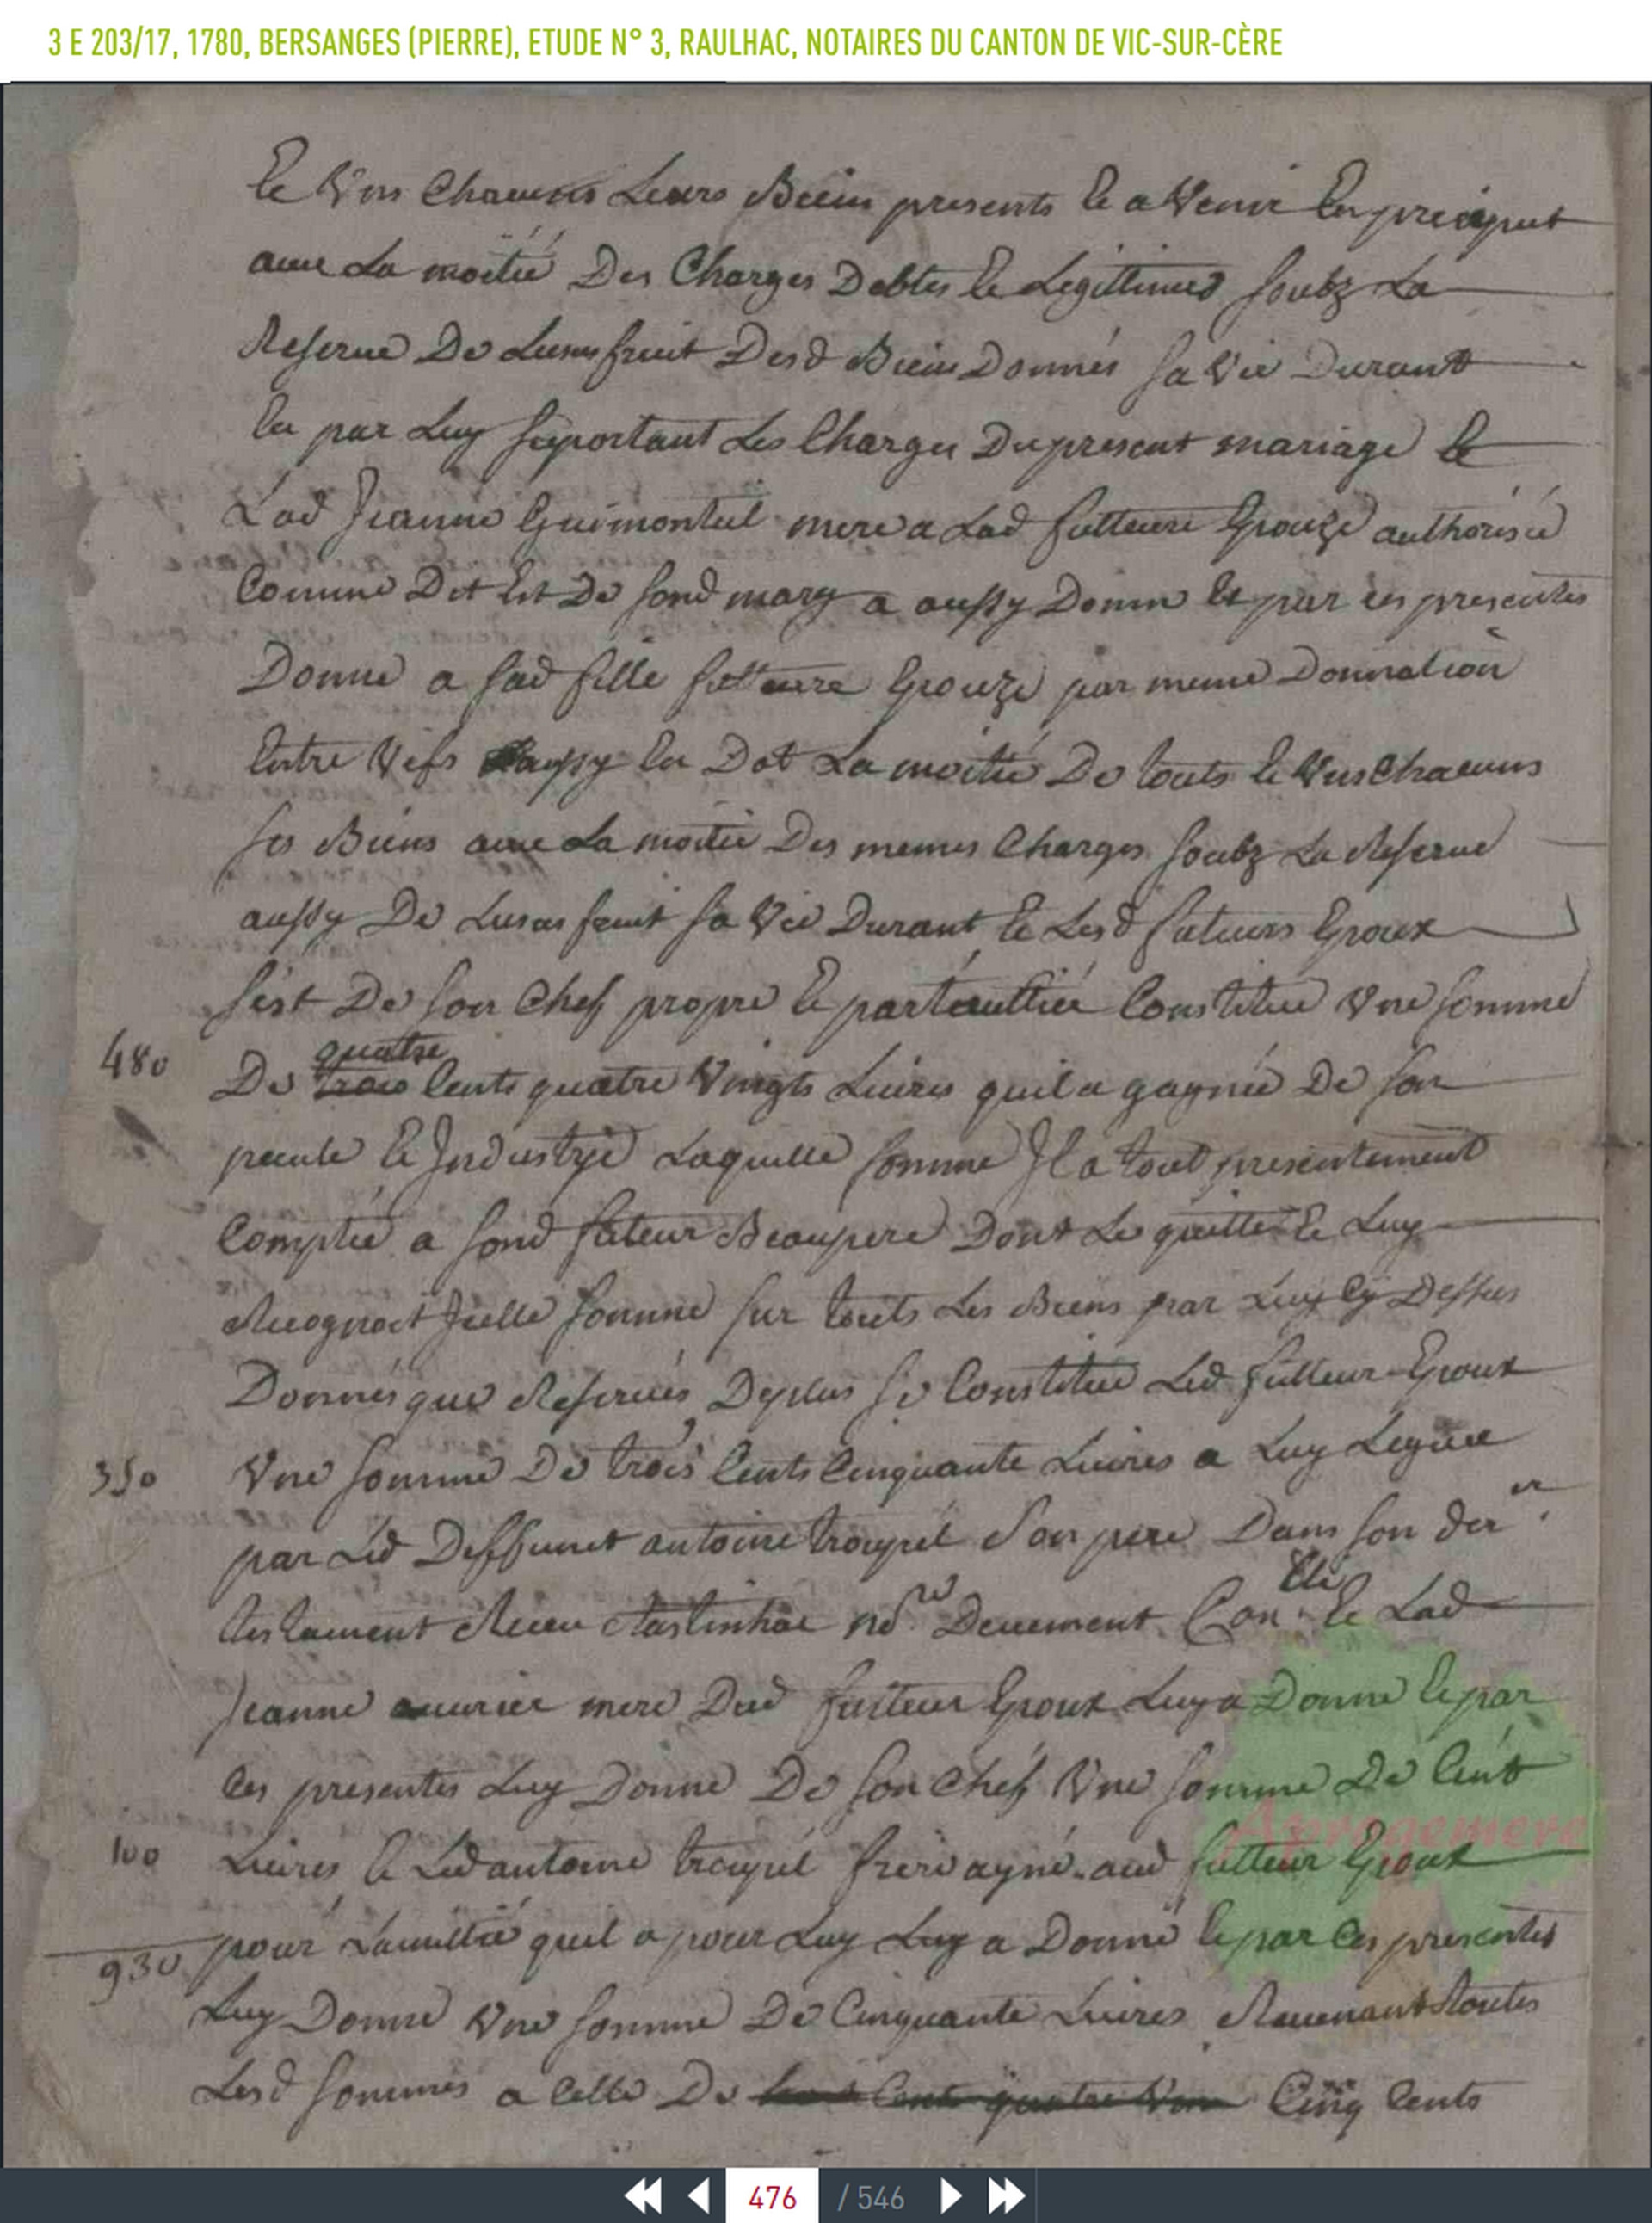 3 E 203/17, 1780, BERSANGES (PIERRE), ETUDE N° 3, RAULHAC, NOTAIRES DU CANTON DE VIC-SUR-CÈRE
Et Vns Chacuns Leurs Biens presents Et a Venir En preciput
avec La moitié Des Charges Debtes Et Legittimes soubz La
Reserve De Lusufruit Desd Biens Donnés sa Vie Durant
En par Luy suportant Les Charges Du present mariage Et
Lad Jeanne Guimonteil mere a Lad futteure Epouze authorisée
Comme Dit Est De sond mary a aussy Donné Et par ces presentes
Donne a sad fille futteure Epouze par meme Donnation
Entre Vifs aussy En Dot La moitié De touts Et Vns Chacuns
ses Biens avec La moitié Des memes Charges soubz La Reserve
aussy De Lusufruit sa Vie Durant Et Lesd futeurs Epoux
sést De son Chef propre Et particullier Constitué Vne somme
480
quatre
De trois Cents quatre Vingts Livres quil a gagnée De son
pecule Et Industrie Laquelle somme Il a tout presentement
Comptée a sond futeur Beaupere Dont Le quitte Et Luy
Recognoit Icelle somme sur touts Les Biens par Luy Cy Dessus
Donnés que Reservés Deplus se Constitue Led futteur Epoux
350
Vne somme De trois Cents Cinquante Livres a Luy Leguée
par Led Deffunct antoine trouyel son pere Dans son der er
testament Receu Nore Deuement Con Elé Et Lad
Jeanne mere Dud futteur Epoux Luy a Donné Et par
Ces presentes Luy Donne De son Chef Vne somme De Cent
100
Livres Et Led antoine trouyel frere ayné aud futteur Epoux
930
pour Lamittié quil a pour Luy Luy a Donné Et par Ces presentes
Luy Donne Vne somme De Cinquante Livres Revenant toutes
Lesd sommes a Celle De Cents quatre Vin Cinq Cents
Aprogemere
476 / 546